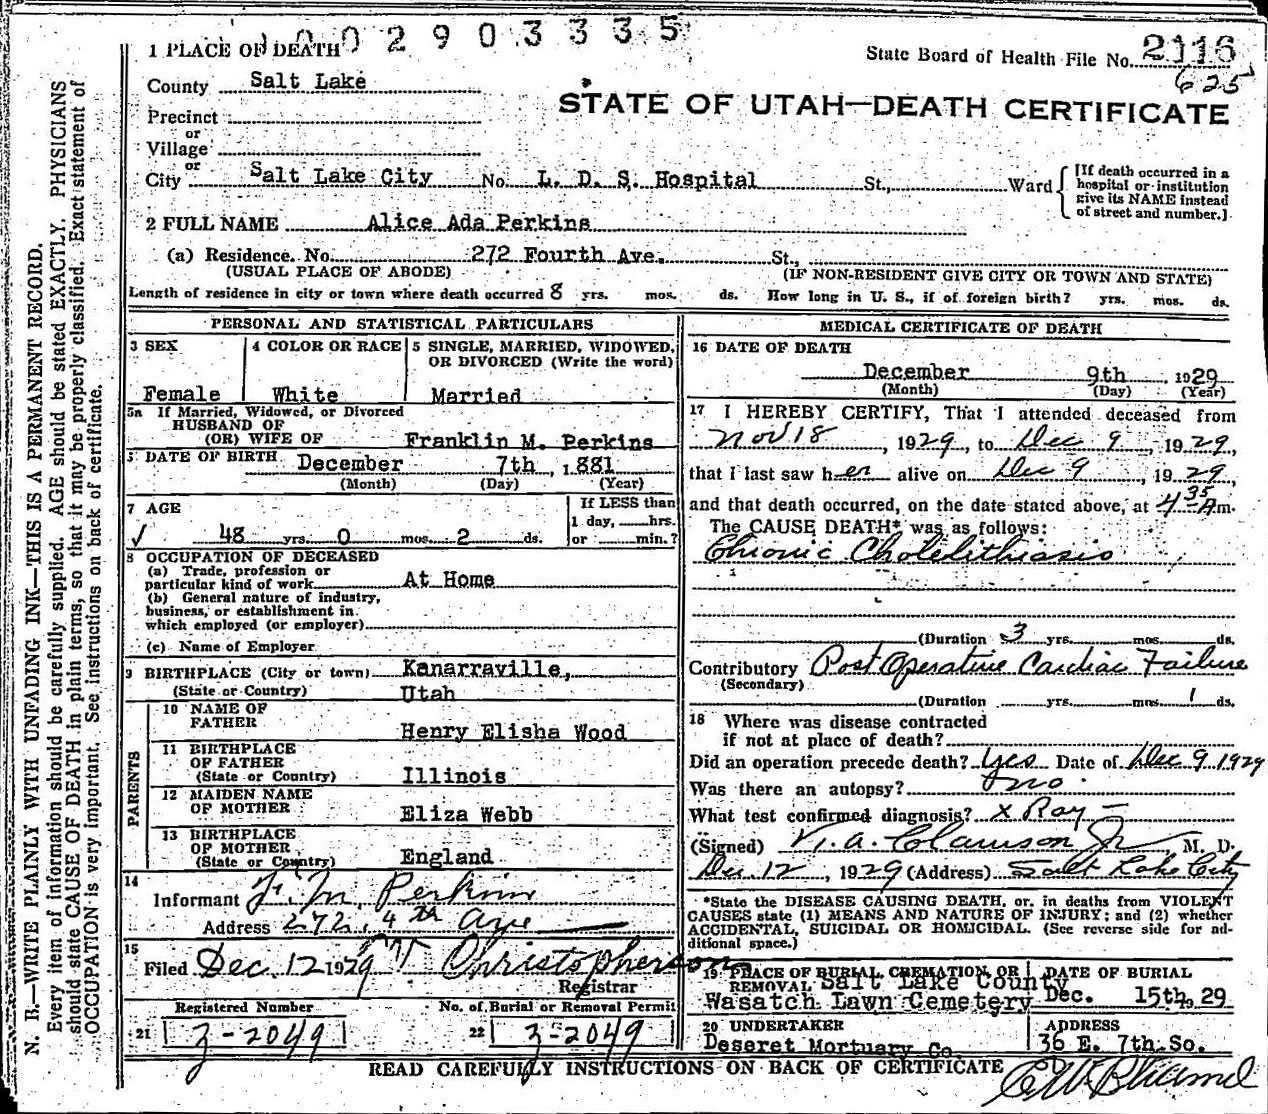 0 0 2 9 0 3 3 3 5
1 PLACE OF DEATH
State Board of Health File No. 2116
625
County Salt Lake
STATE OF UTAH—DEATH CERTIFICATE
Precinct
or
Village
or
City Salt Lake City No. L. D. S. Hospital St., Ward
[If death occurred in a
hospital or institution
give its NAME instead
of street and number.]
2 FULL NAME Alice Ada Perkins
(a) Residence. No. 272 Fourth Ave. St.,
(USUAL PLACE OF ABODE) (IF NON-RESIDENT GIVE CITY OR TOWN AND STATE)
Length of residence in city or town where death occurred 8 yrs. mos. ds. How long in U. S., if of foreign birth? yrs. mos. ds.
PERSONAL AND STATISTICAL PARTICULARS
3 SEX
Female
4 COLOR OR RACE
White
5 SINGLE, MARRIED, WIDOWED,
OR DIVORCED (Write the word)
Married
5a If Married, Widowed, or Divorced
HUSBAND OF
(OR) WIFE OF Franklin M. Perkins
DATE OF BIRTH December 7th, 1881
(Month) (Day) (Year)
7 AGE
✓ 48 yrs. 0 mos. 2 ds.
If LESS than
1 day, hrs.
or min.?
8 OCCUPATION OF DECEASED
(a) Trade, profession or
particular kind of work At Home
(b) General nature of industry,
business, or establishment in
which employed (or employer)
(c) Name of Employer
9 BIRTHPLACE (City or town) Kanarraville,
(State or Country) Utah
PARENTS
10 NAME OF
FATHER Henry Elisha Wood
11 BIRTHPLACE
OF FATHER
(State or Country) Illinois
12 MAIDEN NAME
OF MOTHER Eliza Webb
13 BIRTHPLACE
OF MOTHER
(State or Country) England
14
Informant F. M. Perkins
Address 272, 4th Ave
15
Filed Dec. 12 1929 Christopherson
Registrar
Registered Number
21 3-2049
No. of Burial or Removal Permit
22 3-2049
MEDICAL CERTIFICATE OF DEATH
16 DATE OF DEATH
December 9th, 1929
(Month) (Day) (Year)
17 I HEREBY CERTIFY, That I attended deceased from
Nov 18, 1929, to Dec 9, 1929,
that I last saw her alive on Dec 9, 1929,
and that death occurred, on the date stated above, at 4 35 A m.
The CAUSE DEATH* was as follows:
Chronic Cholelithiasis
(Duration 3 yrs. mos. ds.
Contributory Post Operative Cardiac Failure
(Secondary)
(Duration yrs. mos. 1 ds.
18 Where was disease contracted
if not at place of death?
Did an operation precede death? yes Date of Dec 9 1929
Was there an autopsy? no
What test confirmed diagnosis? X Ray —
(Signed) Clawson Jr, M. D.
Dec. 12, 1929 (Address) Salt Lake City
*State the DISEASE CAUSING DEATH, or, in deaths from VIOLENT
CAUSES state (1) MEANS AND NATURE OF INJURY; and (2) whether
ACCIDENTAL, SUICIDAL OR HOMICIDAL. (See reverse side for ad-
ditional space.)
19 PLACE OF BURIAL, CREMATION, OR
REMOVAL Salt Lake County
Wasatch Lawn Cemetery
DATE OF BURIAL
Dec. 15th, 29
20 UNDERTAKER
Deseret Mortuary Co.
ADDRESS
36 E. 7th So.
READ CAREFULLY INSTRUCTIONS ON BACK OF CERTIFICATE
N. B.—WRITE PLAINLY WITH UNFADING INK—THIS IS A PERMANENT RECORD.
Every item of information should be carefully supplied. AGE should be stated EXACTLY. PHYSICIANS
should state CAUSE OF DEATH in plain terms, so that it may be properly classified. Exact statement of
OCCUPATION is very important. See instructions on back of certificate.